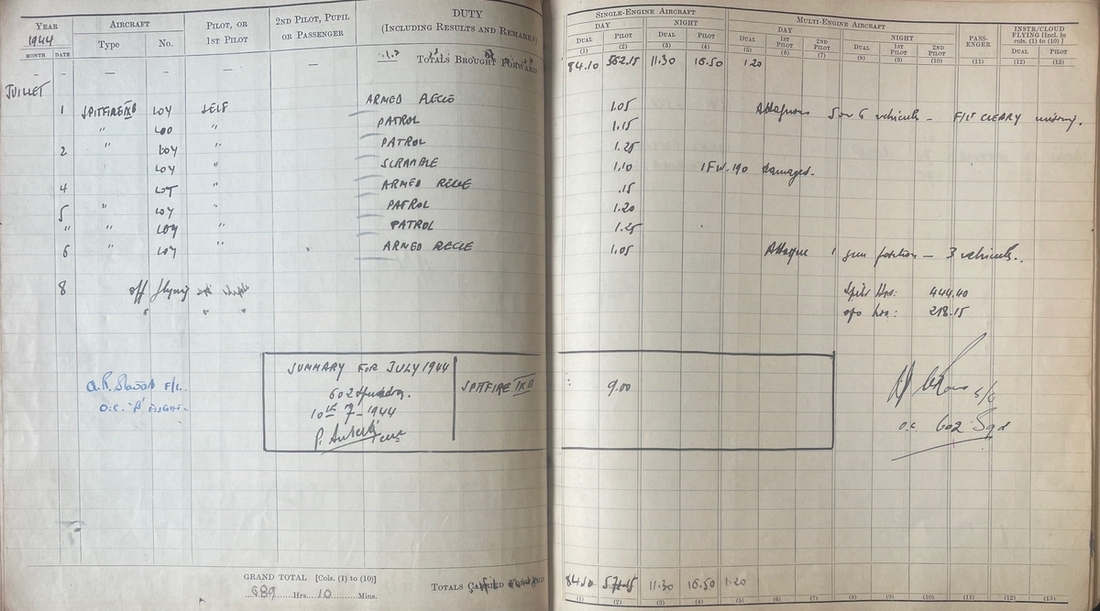 YEAR AIRCRAFT PILOT, OR 1ST PILOT 2ND PILOT, PUPIL OR PASSENGER DUTY (INCLUDING RESULTS AND REMARKS) SINGLE-ENGINE AIRCRAFT MULTI-ENGINE AIRCRAFT PASS-ENGER INSTR/CLOUD FLYING [Incl. in cols. (1) to (10)]
1944 DAY NIGHT DAY NIGHT
MONTH DATE Type No. DUAL PILOT DUAL PILOT DUAL 1ST PILOT 2ND PILOT DUAL 1ST PILOT 2ND PILOT DUAL PILOT
(1) (2) (3) (4) (5) (6) (7) (8) (9) (10) (11) (12) (13)
— — — — — — TOTALS BROUGHT FORWARD 84.10 562.15 11.30 16.50 1.20
JUILLET
1 SPITFIRE IX B LOY SELF ARMED RECCE 1.05 5 or 6 vehicules - F/LT CLEARY missing.
" LOO " PATROL 1.15
2 " LOY " PATROL 1.25
LOY " SCRAMBLE 1.10 1 FW.190 damaged.
4 LOT " ARMED RECCE .15
5 " LOY PATROL 1.20
" " LOY " PATROL 1.25
6 " LOY " ARMED RECCE 1.05 Attaque 1 gun position — 3 vehicules.
8 off flying Spit Hrs: 444.40
" " " ops hrs: 218.15
SUMMARY FOR JULY 1944 SPITFIRE IX B : 9.00
602 Squadron.
10th 7-1944
F/L.
O.C. 'B' FLIGHT.
S/L
O.C. 602 Sqd
GRAND TOTAL [Cols. (1) to (10)]
689 Hrs. 10 Mins.
TOTALS CARRIED FORWARD 84.10 571.15 11.30 16.50 1.20
(1) (2) (3) (4) (5) (6) (7) (8) (9) (10) (11) (12) (13)